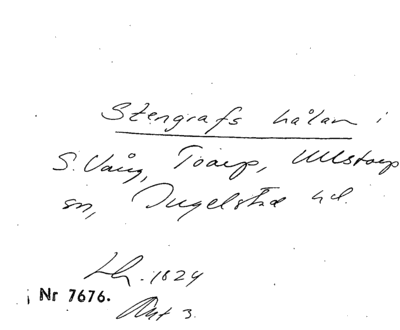 Stengrafs hålan i
S. Vång, Toarp, Ullstorp
sn, Ingelstad hd.
Lh. 1824
Nr 7676.
Akt 3.